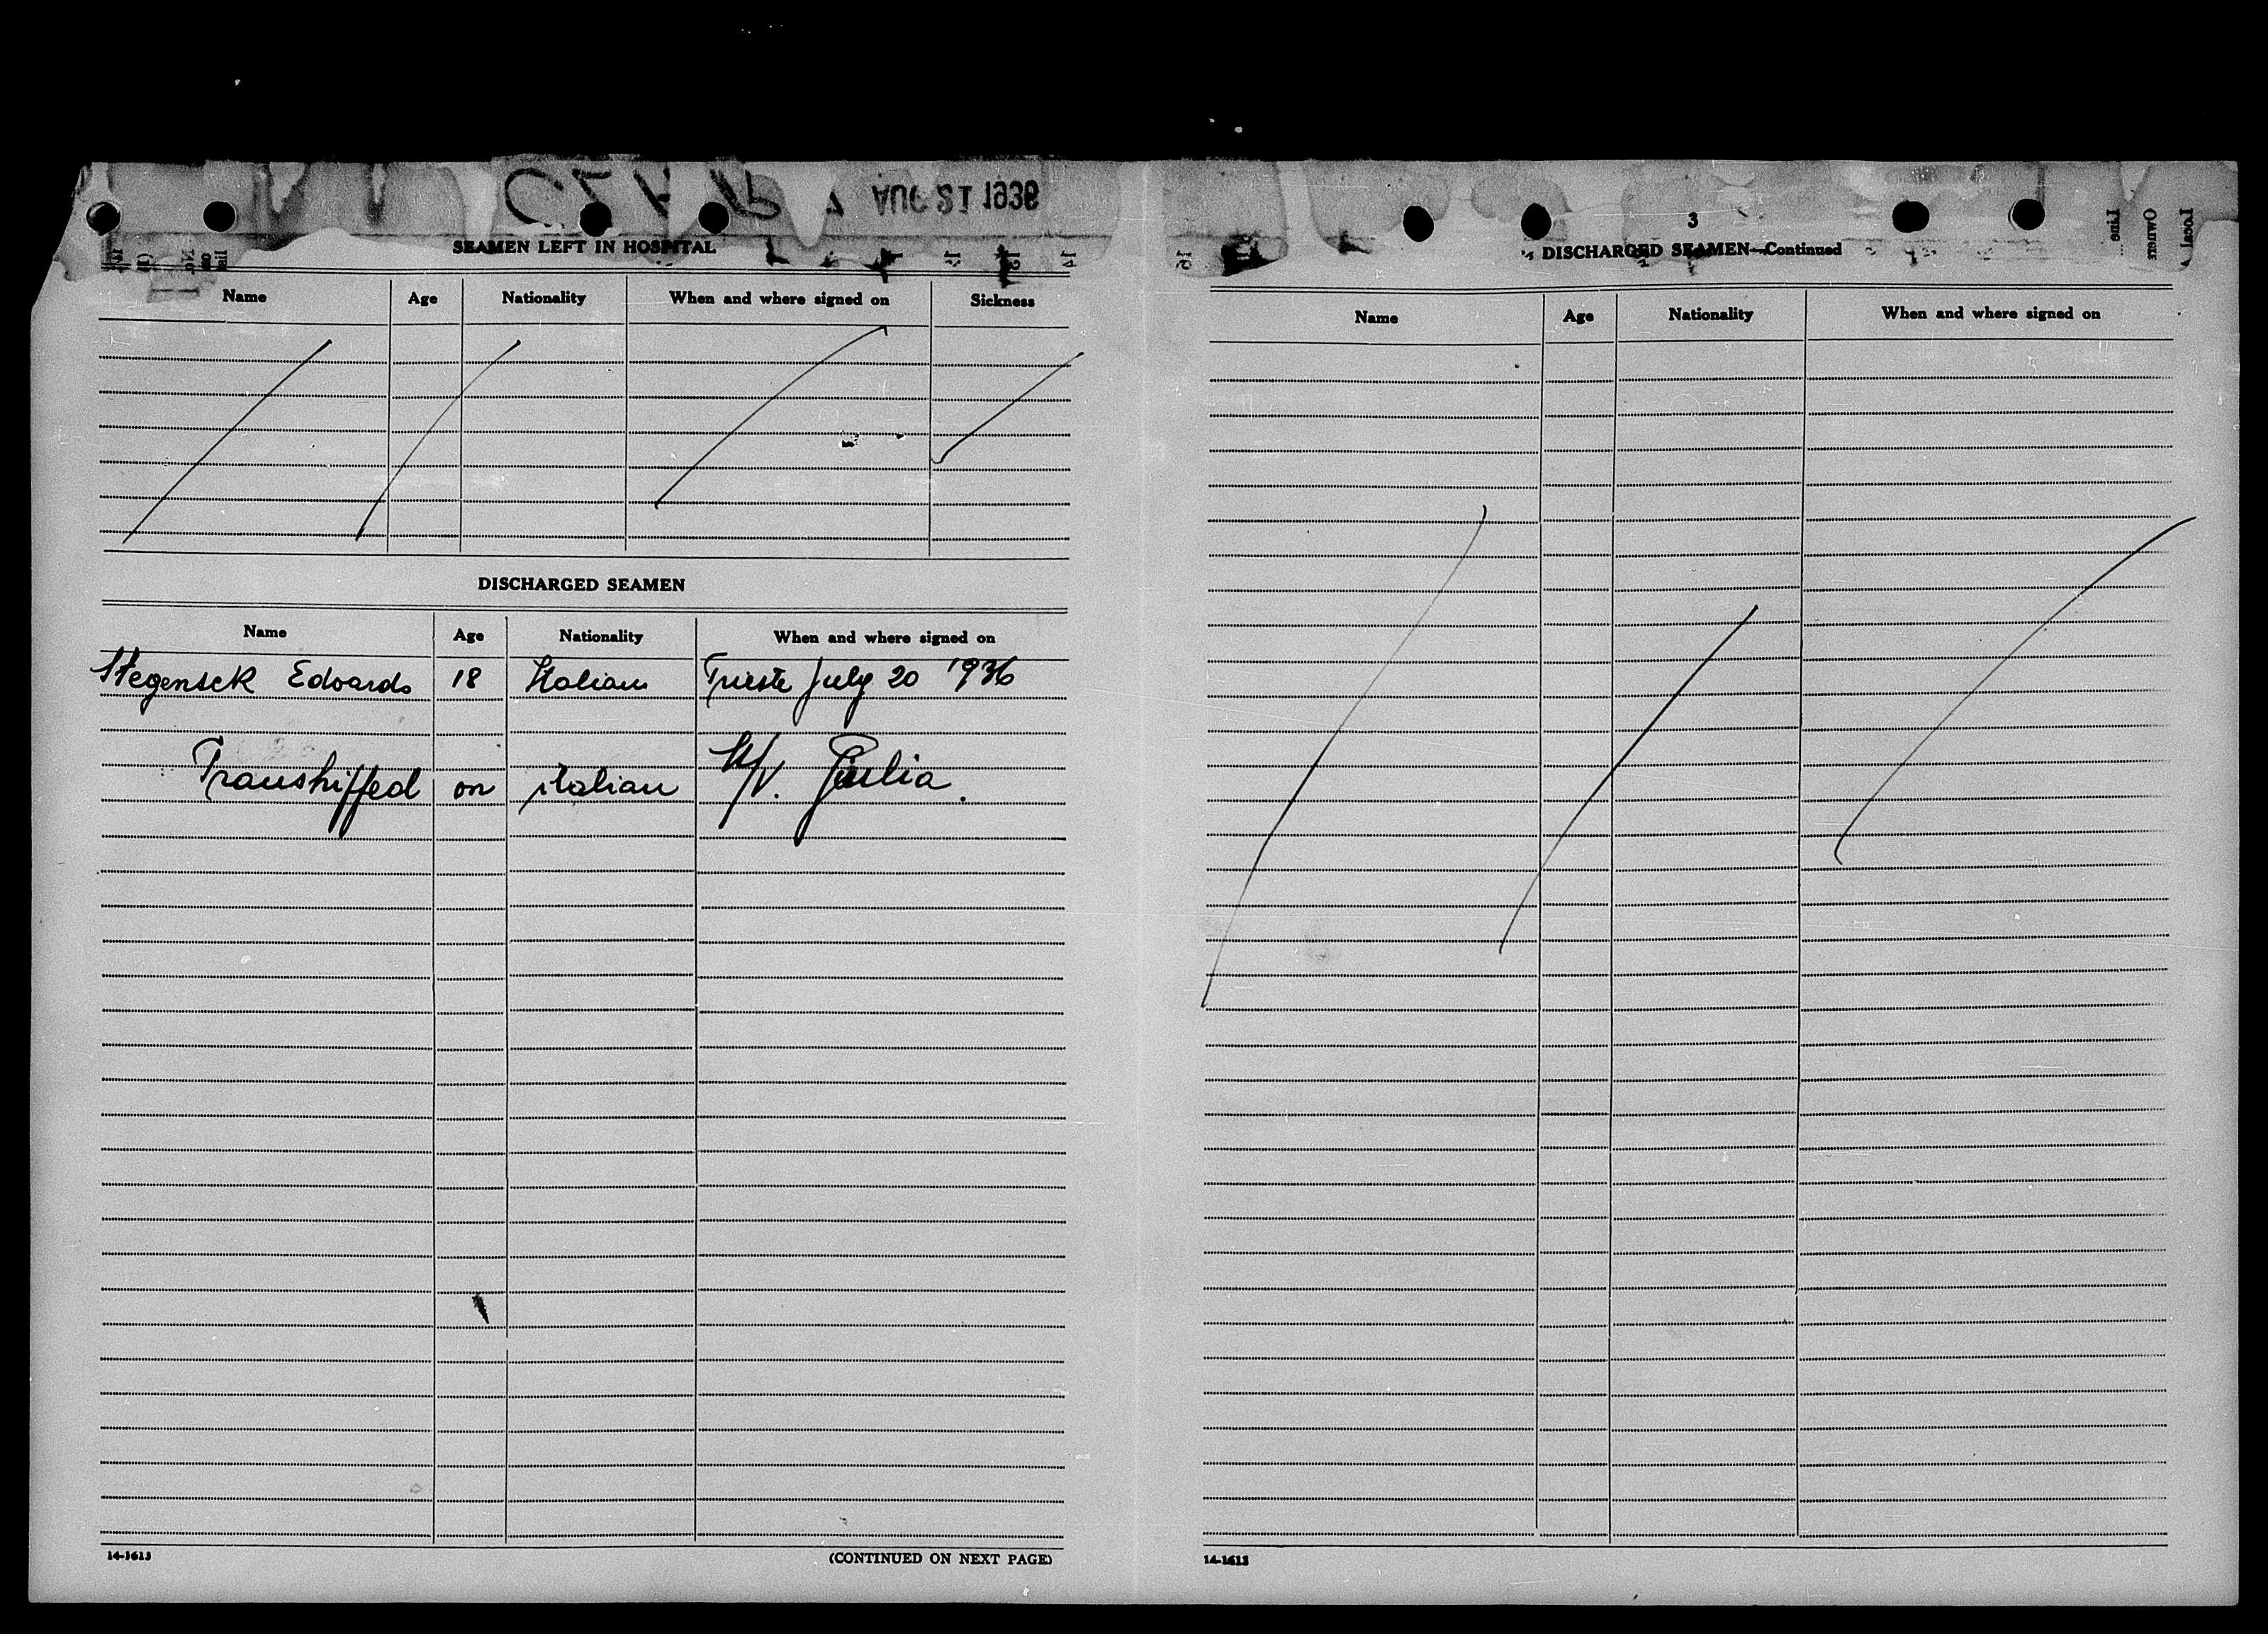 AUG 21 1936
SEAMEN LEFT IN HOSPITAL
Name Age Nationality When and where signed on Sickness
DISCHARGED SEAMEN
Name Age Nationality When and where signed on
Stegensek Edoardo 18 Italian Trieste July 20 1936
Transhipped on italian M/V. Giulia.
14-1613
(CONTINUED ON NEXT PAGE)
3
DISCHARGED SEAMEN—Continued
Line
Owners
Local
Name Age Nationality When and where signed on
14-1613